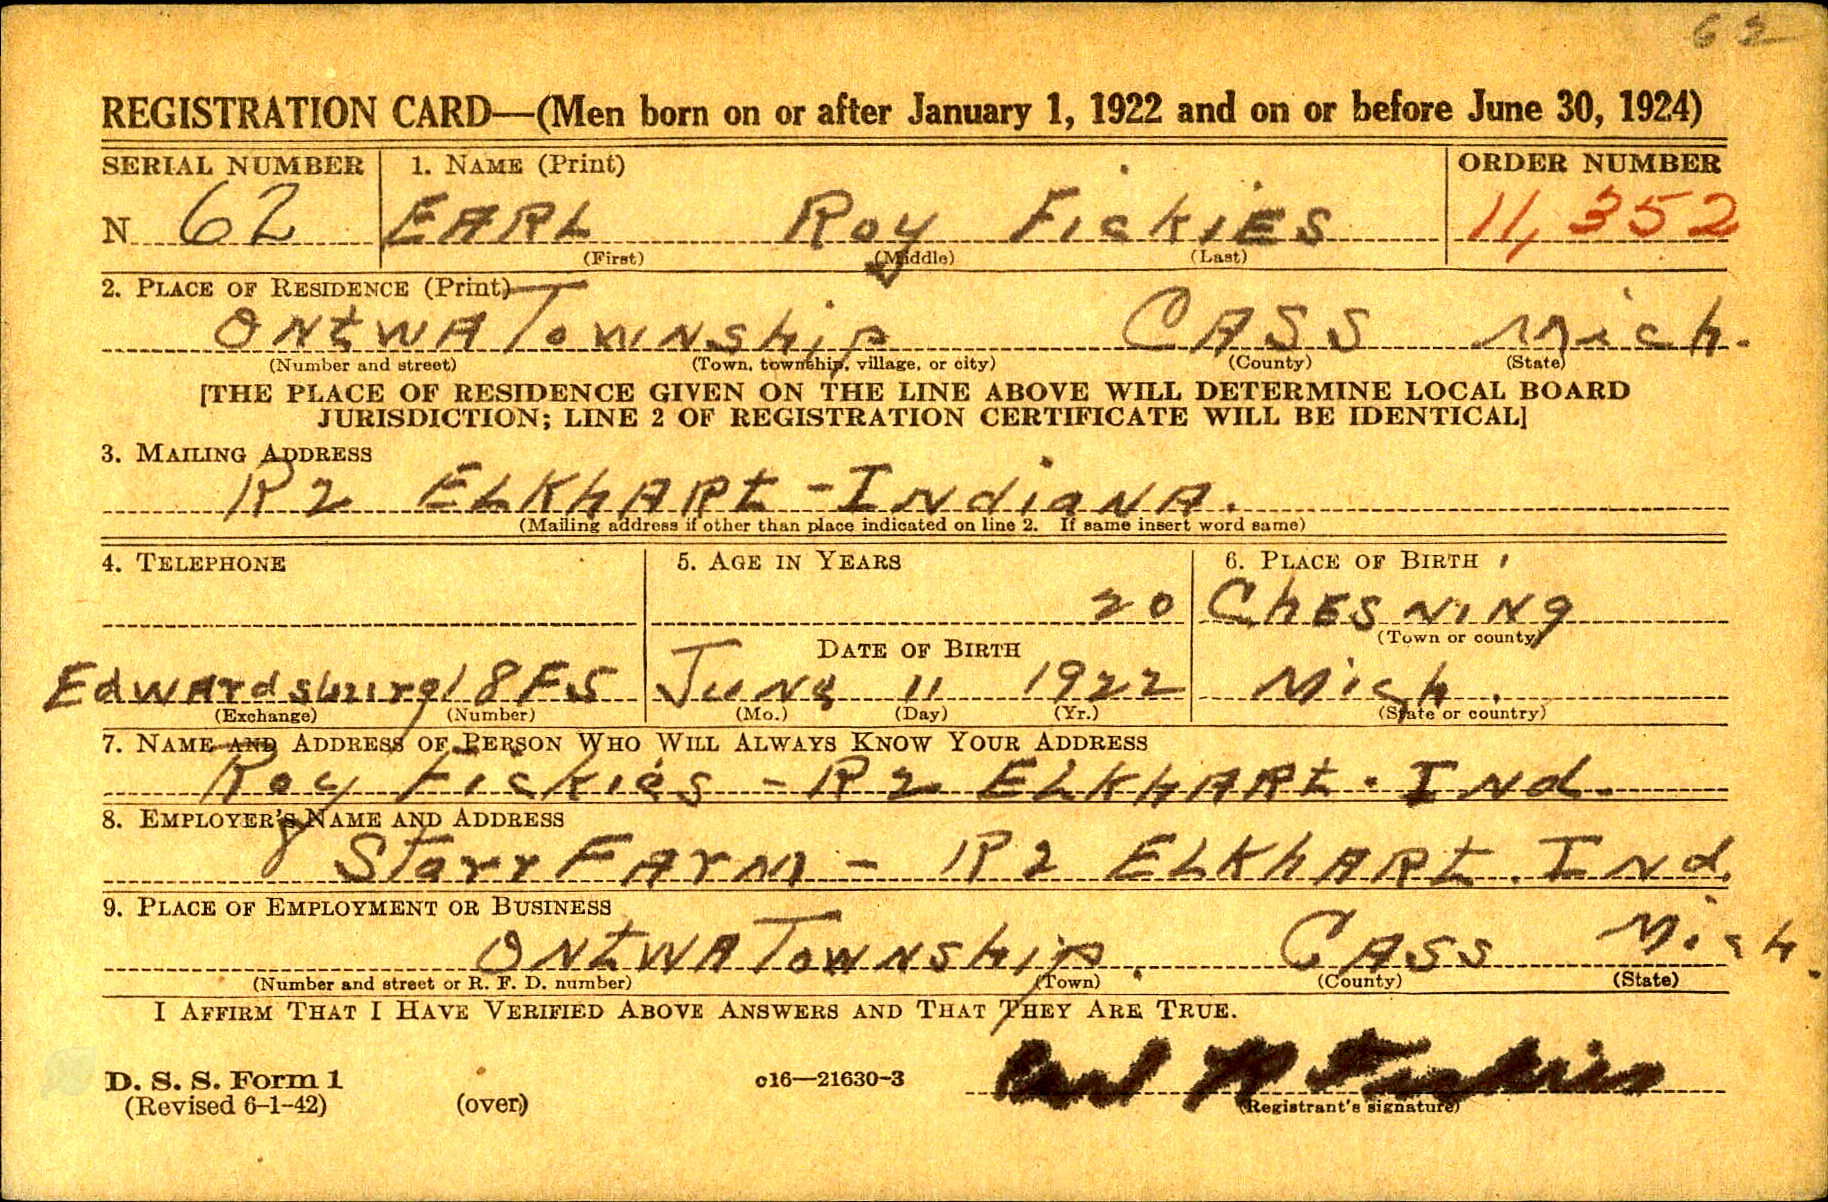 62
REGISTRATION CARD—(Men born on or after January 1, 1922 and on or before June 30, 1924)
SERIAL NUMBER 1. NAME (Print) ORDER NUMBER
N 62 EARL Roy FickiES 11,352
(First) (Middle) (Last)
2. PLACE OF RESIDENCE (Print)
ONtWA TowNship CASS Mich.
(Number and street) (Town, township, village, or city) (County) (State)
[THE PLACE OF RESIDENCE GIVEN ON THE LINE ABOVE WILL DETERMINE LOCAL BOARD
JURISDICTION; LINE 2 OF REGISTRATION CERTIFICATE WILL BE IDENTICAL]
3. MAILING ADDRESS
R2 ELKhARt - INdiaNA.
(Mailing address if other than place indicated on line 2. If same insert word same)
4. TELEPHONE 5. AGE IN YEARS 6. PLACE OF BIRTH
20 ChESNiNg
(Town or county)
DATE OF BIRTH
Edwardsburg 18F5 JuNe 11 1922 Mich.
(Exchange) (Number) (Mo.) (Day) (Yr.) (State or country)
7. NAME AND ADDRESS OF PERSON WHO WILL ALWAYS KNOW YOUR ADDRESS
Roy Fickies - R2 ELKhARt. INd.
8. EMPLOYER'S NAME AND ADDRESS
Starr FArm - R2 ELKhARt. INd.
9. PLACE OF EMPLOYMENT OR BUSINESS
ONtWA TowNship. CASS Mich.
(Number and street or R. F. D. number) (Town) (County) (State)
I AFFIRM THAT I HAVE VERIFIED ABOVE ANSWERS AND THAT THEY ARE TRUE.
D. S. S. Form 1
(Revised 6-1-42) (over) c16—21630-3 Earl R Fickies
(Registrant's signature)